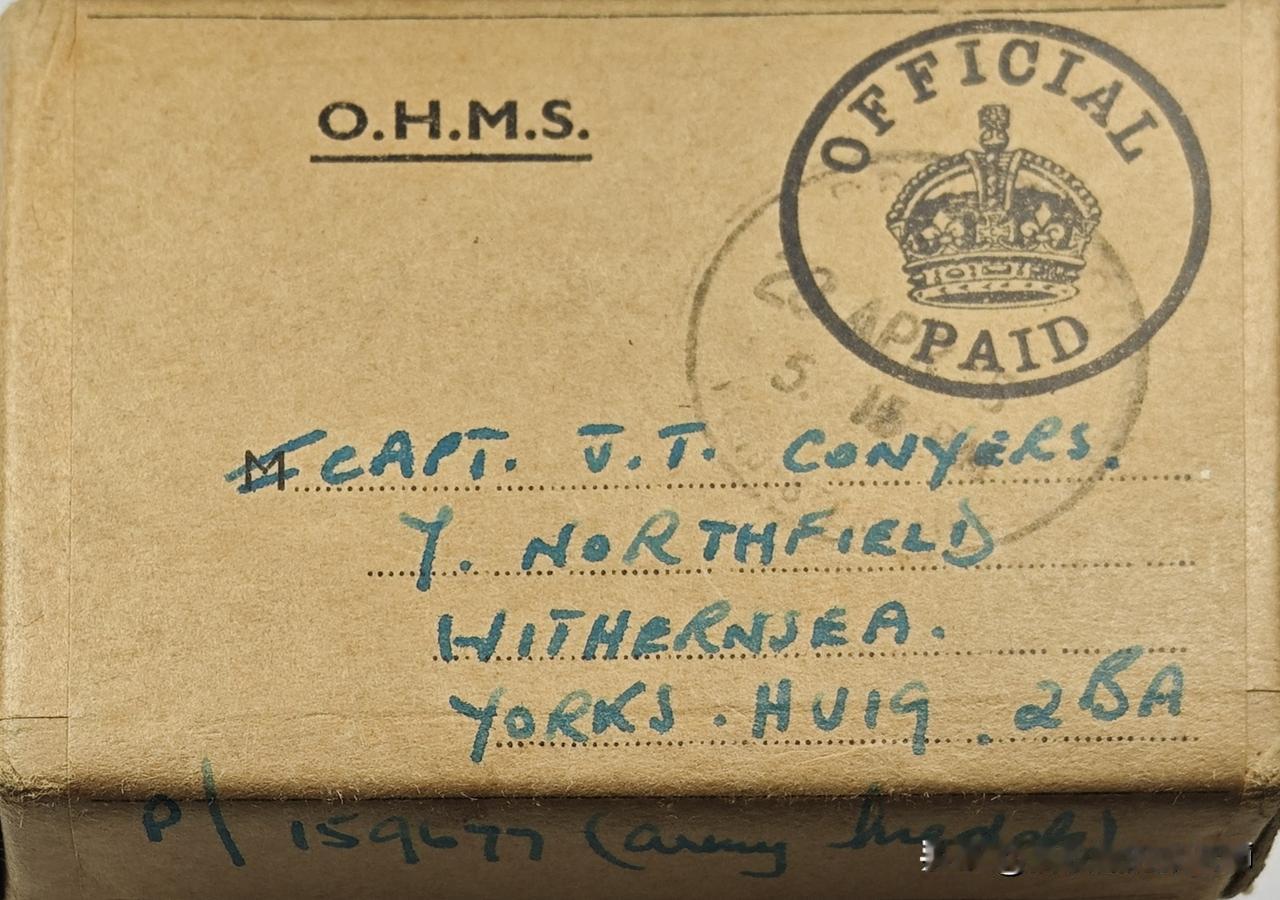 O.H.M.S.
OFFICIAL
PAID
23 APR
5. 15
M CAPT. J.T. CONYERS.
7. NORTHFIELD
WITHERNSEA.
YORKS. HU19. 2BA
P/ 159677 (army medals)